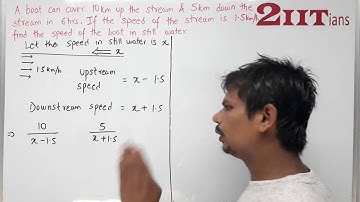 A boat can cover 10km up the stream & 5km down the
stream in 6hrs. If the speed of the stream is 1.5km/h
find the speed of the boat in still water.
2IITians
Let the speed in still water is x
→
→ ←x
→ 1.5km/h
upstream speed = x - 1.5
Downstream speed = x + 1.5
⇒ 10/(x-1.5) 5/(x+1.5)